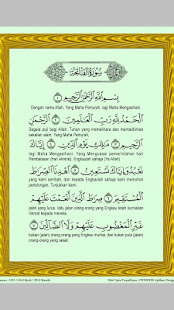 سُورَةُ الْفَاتِحَةِ
بِسْمِ اللَّهِ الرَّحْمَٰنِ الرَّحِيمِ
Dengan nama Allah, Yang Maha Pemurah, lagi Maha Mengasihani.
الْحَمْدُ لِلَّهِ رَبِّ الْعَالَمِينَ الرَّحْمَٰنِ
Segala puji bagi Allah, Tuhan yang memelihara dan mentadbirkan
sekalian alam. Yang Maha Pemurah,
الرَّحِيمِ مَالِكِ يَوْمِ الدِّينِ إِيَّاكَ
lagi Maha Mengasihani. Yang Menguasai pemerintahan hari
Pembalasan (hari Akhirat). Engkaulah sahaja (Ya Allah)
نَعْبُدُ وَإِيَّاكَ نَسْتَعِينُ اهْدِنَا الصِّرَاطَ
yang kami sembah, dan kepada Engkaulah sahaja kami memohon
pertolongan. Tunjukilah kami
الْمُسْتَقِيمَ صِرَاطَ الَّذِينَ أَنْعَمْتَ عَلَيْهِمْ
jalan yang lurus. Iaitu jalan orang-orang yang Engkau telah kurniakan
nikmat kepada mereka,
غَيْرِ الْمَغْضُوبِ عَلَيْهِمْ وَلَا الضَّالِّينَ
bukan (jalan) orang-orang yang Engkau murkai, dan bukan pula (jalan)
orang-orang yang sesat.